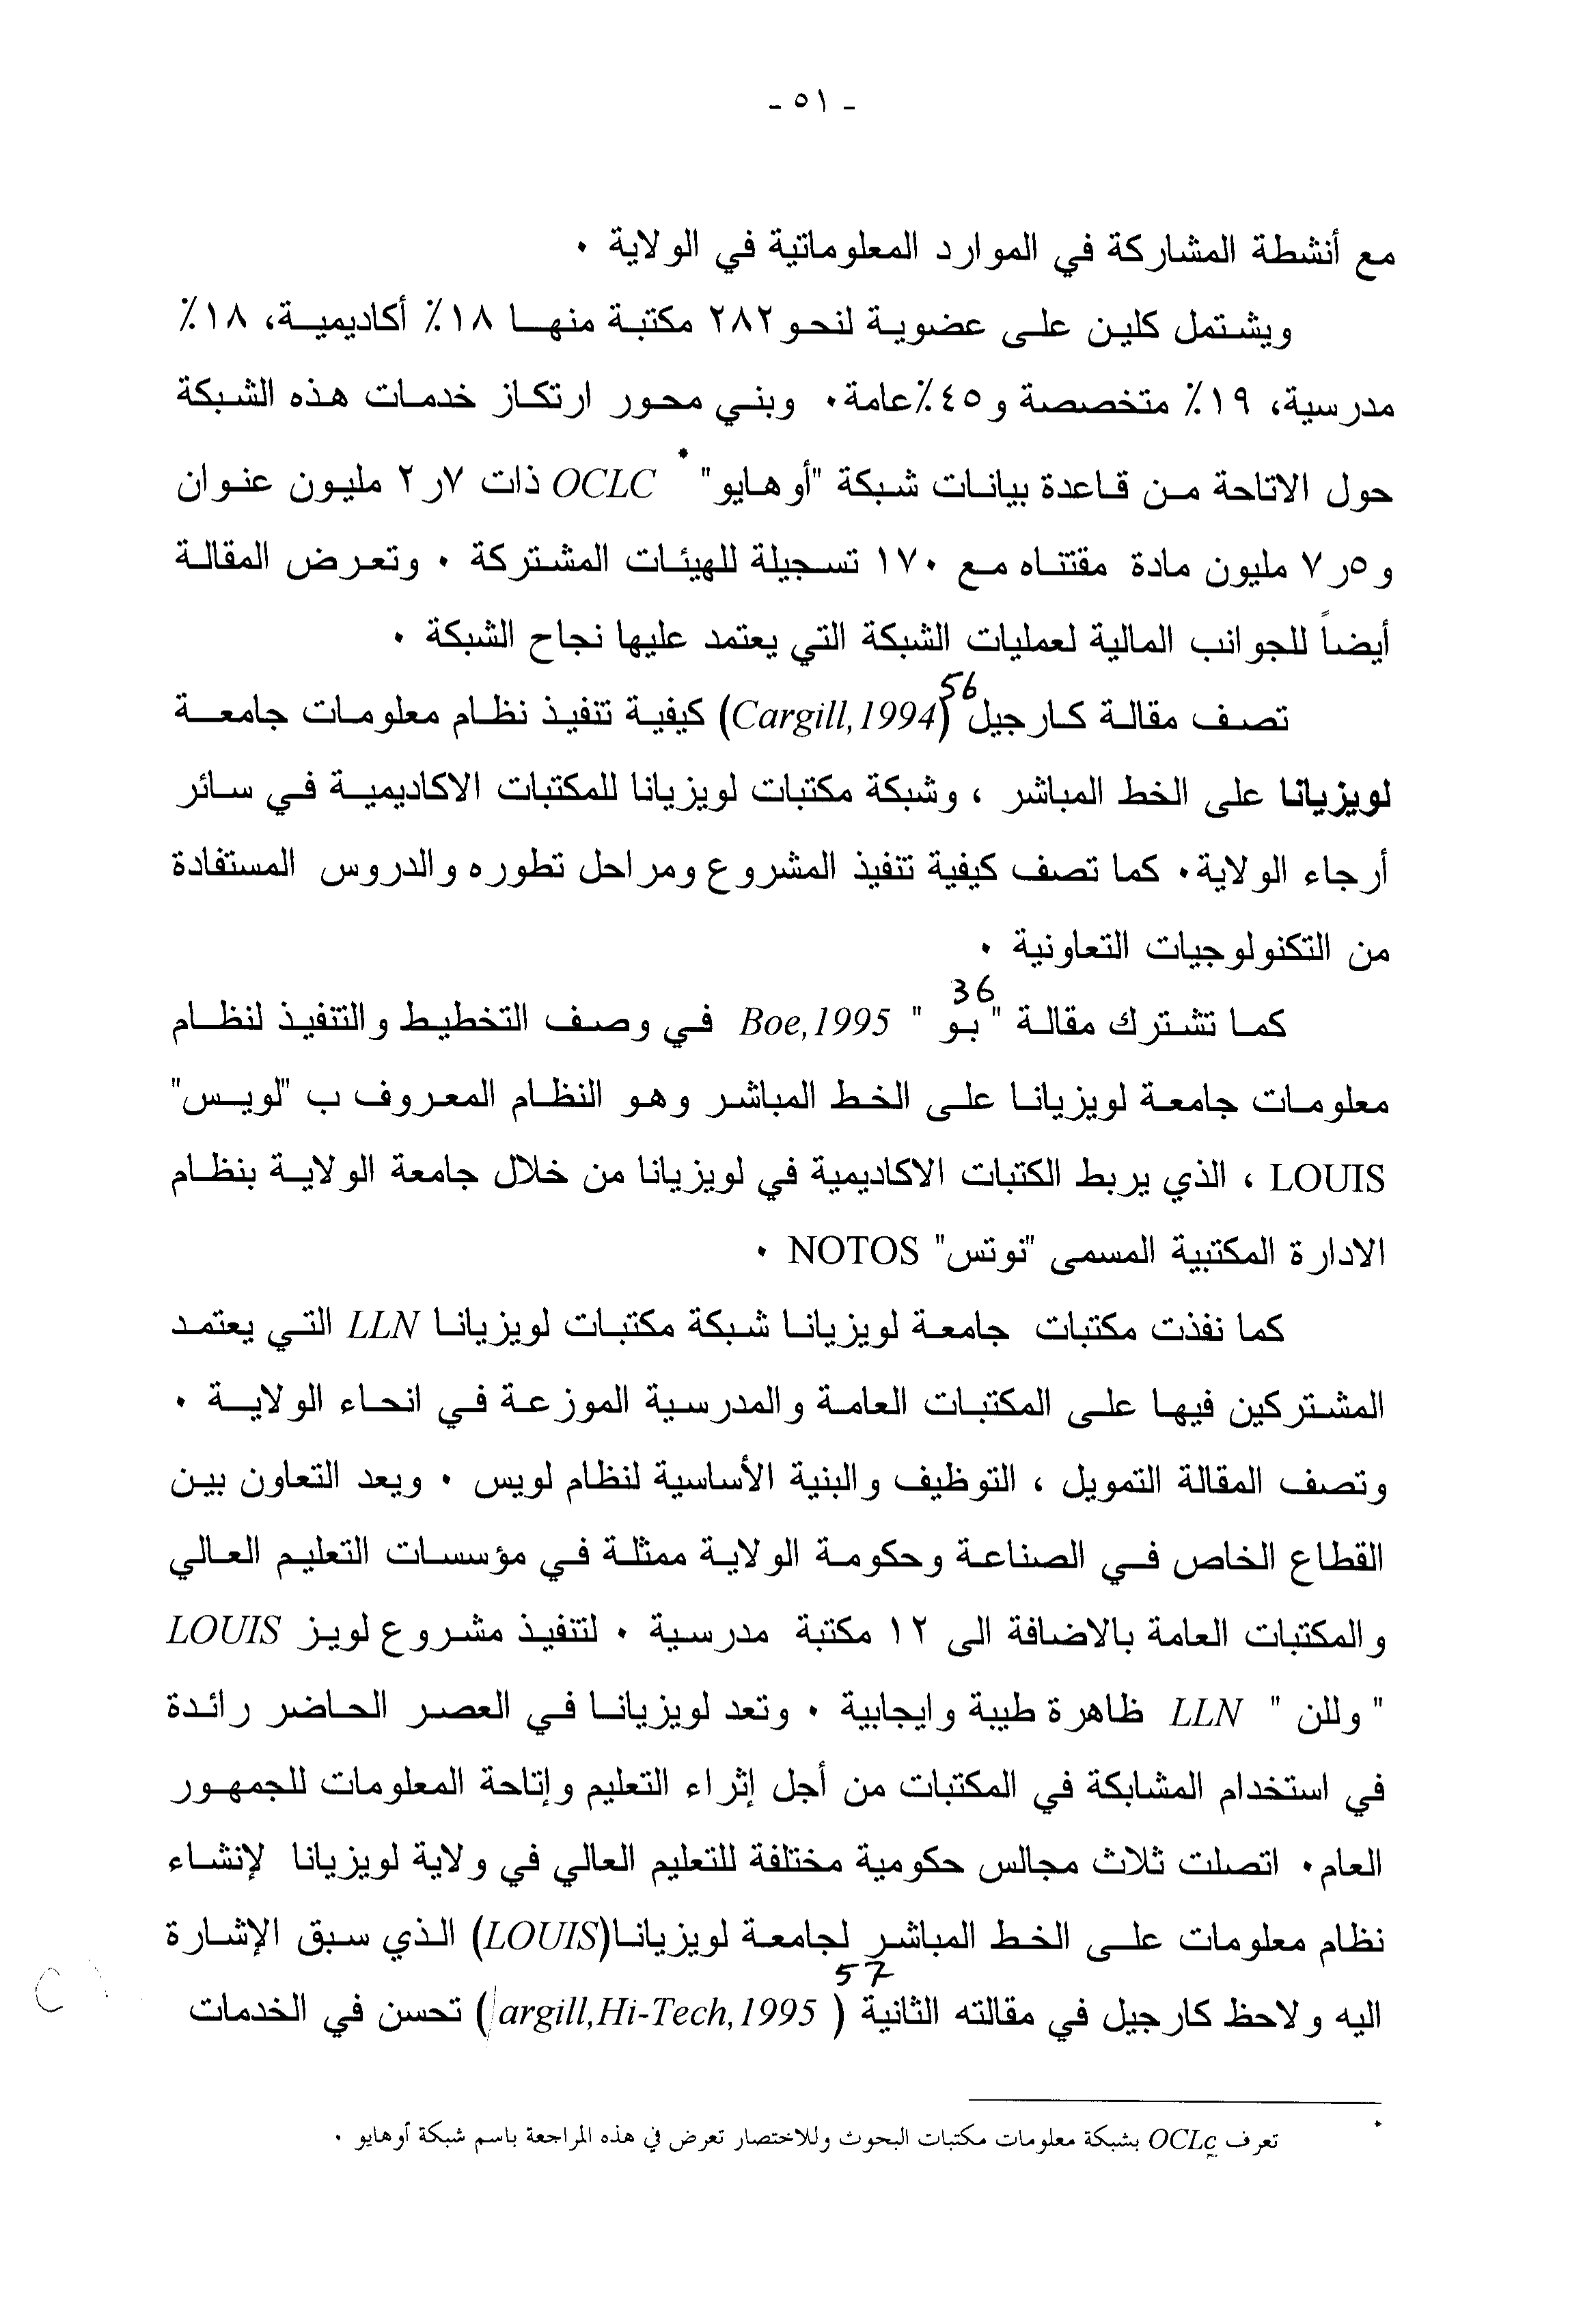 - ٥١ -
مع أنشطة المشاركة في الموارد المعلوماتية في الولاية ٠
ويشتمل كلين على عضوية لنحو ٢٨٢ مكتبة منها ١٨٪ أكاديمية، ١٨٪
مدرسية، ١٩٪ متخصصة و٤٥٪عامة٠ وبني محور ارتكاز خدمات هذه الشبكة
حول الاتاحة من قاعدة بيانات شبكة "أوهايو" * OCLC ذات ٧ر٢ مليون عنوان
و٥ر٧ مليون مادة مقتتناه مع ١٧٠ تسجيلة للهيئات المشتركة ٠ وتعرض المقالة
أيضاً للجوانب المالية لعمليات الشبكة التي يعتمد عليها نجاح الشبكة ٠
تصف مقالة كارجيل 56 (Cargill,1994) كيفية تنفيذ نظام معلومات جامعة
لويزيانا على الخط المباشر ، وشبكة مكتبات لويزيانا للمكتبات الاكاديمية في سائر
أرجاء الولاية٠ كما تصف كيفية تنفيذ المشروع ومراحل تطوره والدروس المستفادة
من التكنولوجيات التعاونية ٠
كما تشترك مقالة "بو 36 " Boe,1995 في وصف التخطيط والتنفيذ لنظام
معلومات جامعة لويزيانا على الخط المباشر وهو النظام المعروف ب "لويس"
LOUIS ، الذي يربط الكتبات الاكاديمية في لويزيانا من خلال جامعة الولاية بنظام
الادارة المكتبية المسمى "نوتس" NOTOS ٠
كما نفذت مكتبات جامعة لويزيانا شبكة مكتبات لويزيانا LLN التي يعتمد
المشتركين فيها على المكتبات العامة والمدرسية الموزعة في انحاء الولاية ٠
وتصف المقالة التمويل ، التوظيف والبنية الأساسية لنظام لويس ٠ ويعد التعاون بين
القطاع الخاص في الصناعة وحكومة الولاية ممثلة في مؤسسات التعليم العالي
والمكتبات العامة بالاضافة الى ١٢ مكتبة مدرسية ٠ لتنفيذ مشروع لويز LOUIS
" وللن " LLN ظاهرة طيبة وايجابية ٠ وتعد لويزيانا في العصر الحاضر رائدة
في استخدام المشابكة في المكتبات من أجل إثراء التعليم وإتاحة المعلومات للجمهور
العام٠ اتصلت ثلاث مجالس حكومية مختلفة للتعليم العالي في ولاية لويزيانا لإنشاء
نظام معلومات على الخط المباشر لجامعة لويزيانا(LOUIS) الذي سبق الإشارة
اليه ولاحظ كارجيل في مقالته الثانية 57 ( argill,Hi-Tech,1995) تحسن في الخدمات
* تعرف OCLc بشبكة معلومات مكتبات البحوث وللاختصار تعرض في هذه المراجعة باسم شبكة أوهايو ٠